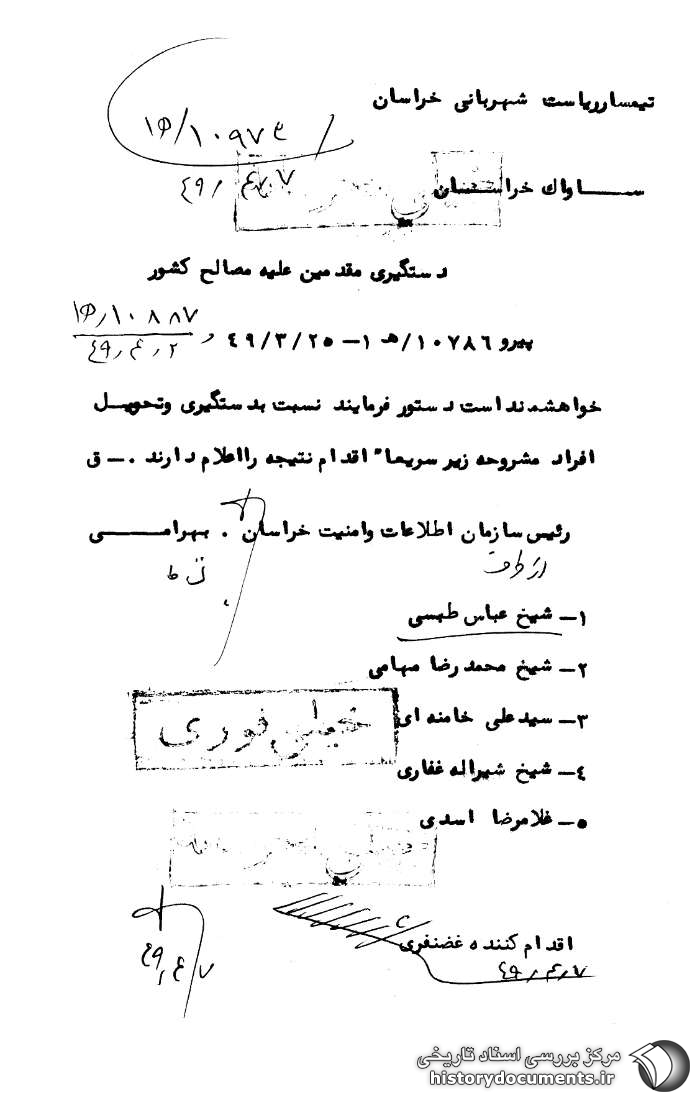 تیمسارریاست شهربانی خراسان
۱ه/۱۰۹۷۴
ســـاواك خراســان
۴۹٫۴٫۷
دستگیری مقدمین علیه مصالح کشور
پیرو ۱۰۷۸۶/هـ ۱ـ ۴۹/۳/۲۵ و ۱ه٫۱۰۸۸۷
۴۹٫۴٫۲
خواهشمنداست دستور فرمایند نسبت بدستگیری وتحویـل
افراد مشروحه زیر سریعاً اقدام نتیجه رااعلام دارند .ـ ق
رئیس سازمان اطلاعات وامنیت خراسان . بهرامـــی
از طرف
۱ـ شیخ عباس طبسی
۲ـ شیخ محمدرضا مهامی
۳ـ سیدعلی خامنه ای
خیلی فوری
۴ـ شیخ شیراله غفاری
۵ـ غلامرضا اسدی
اقدام کننده غضنفری
۴۹٫۴٫۷
۴۹٫۴٫۷
مرکز بررسی اسناد تاریخی
historydocuments.ir